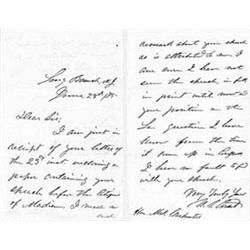 Long Branch, N.J.
June 28th, 75.
Dear Sir:
I am just in
receipt of your letter of
the 23d inst enclosing a
paper containing your
speech before the
of Madison. I made no
such
remark about your speech
as is attributed to me. I
am sure I have not
seen the speech in full
in print until now &
your position on the
question I have
known from the time
it came up in
I have no fault to find
with your speech.
Very Truly Yours
U. S. Grant
Hon. Matt. Carpenter